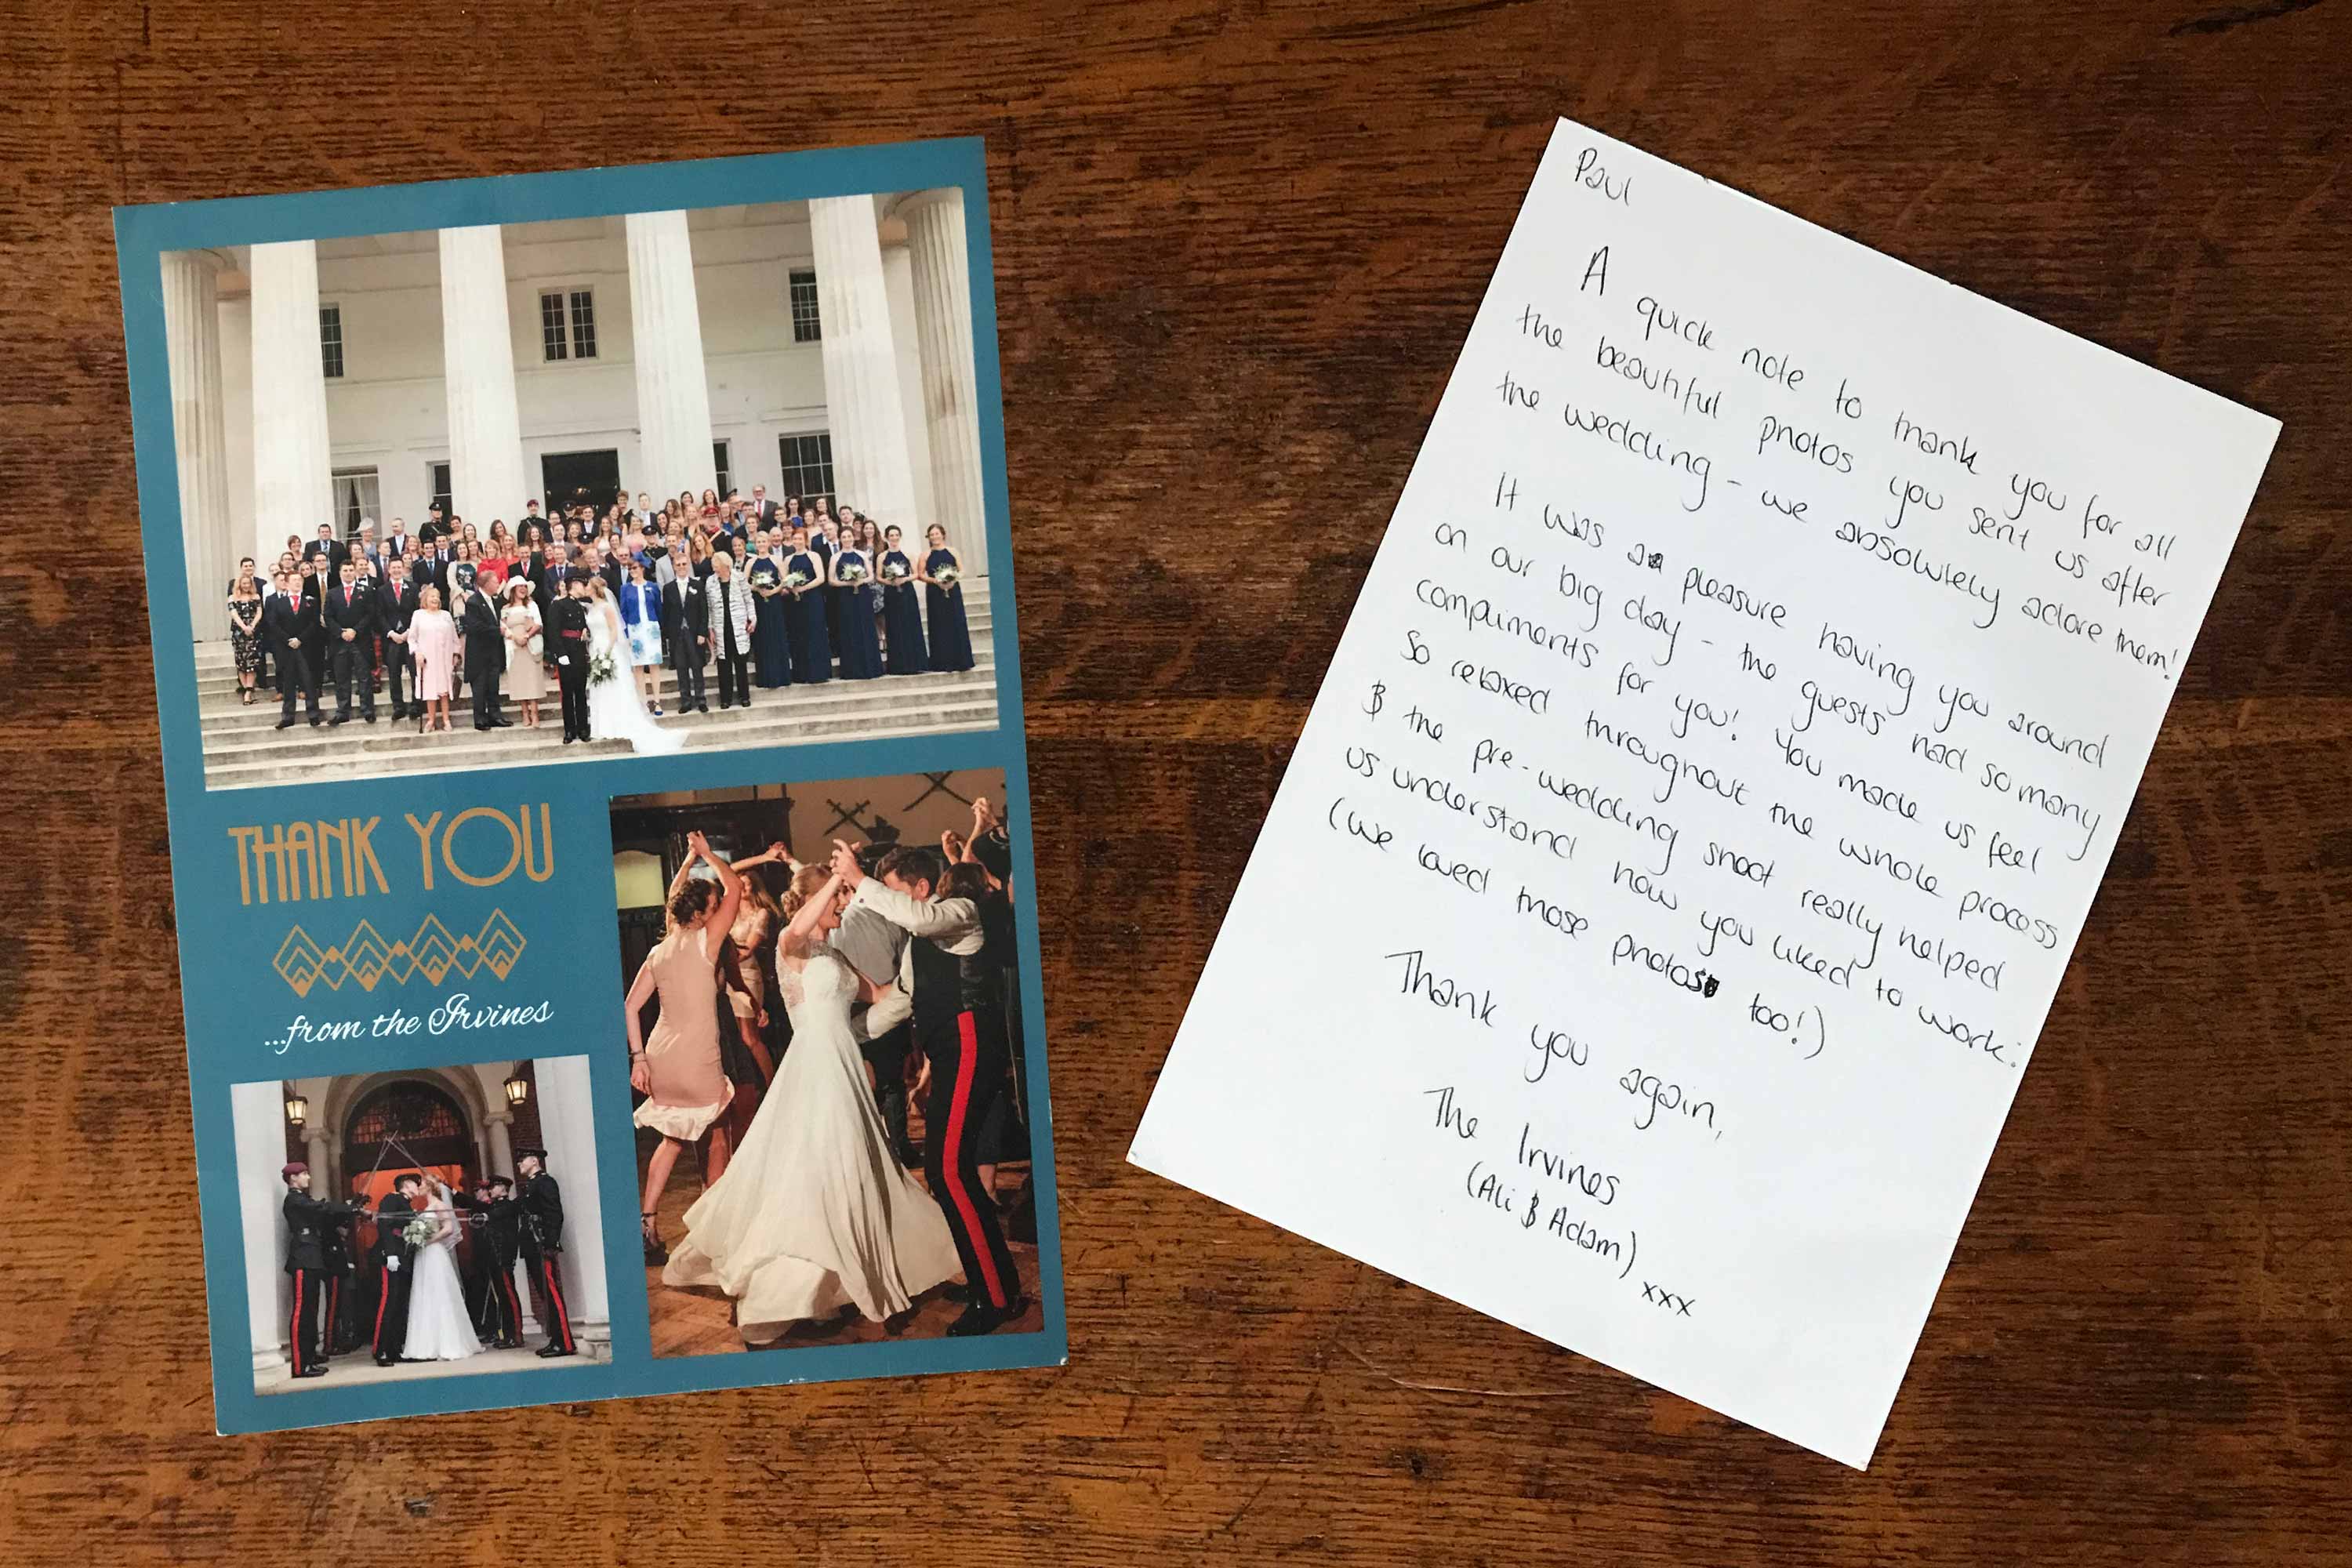 THANK YOU
...from the Irvines
Paul
A quick note to thank you for all
the beautiful photos you sent us after
the wedding - we absolutely adore them!
It was a pleasure having you around
on our big day - the guests had so many
compliments for you! You made us feel
so relaxed throughout the whole process
& the pre-wedding shoot really helped
us understand how you liked to work:
(we loved those photos too!)
Thank you again,
The Irvines
(Ali & Adam)
xxx